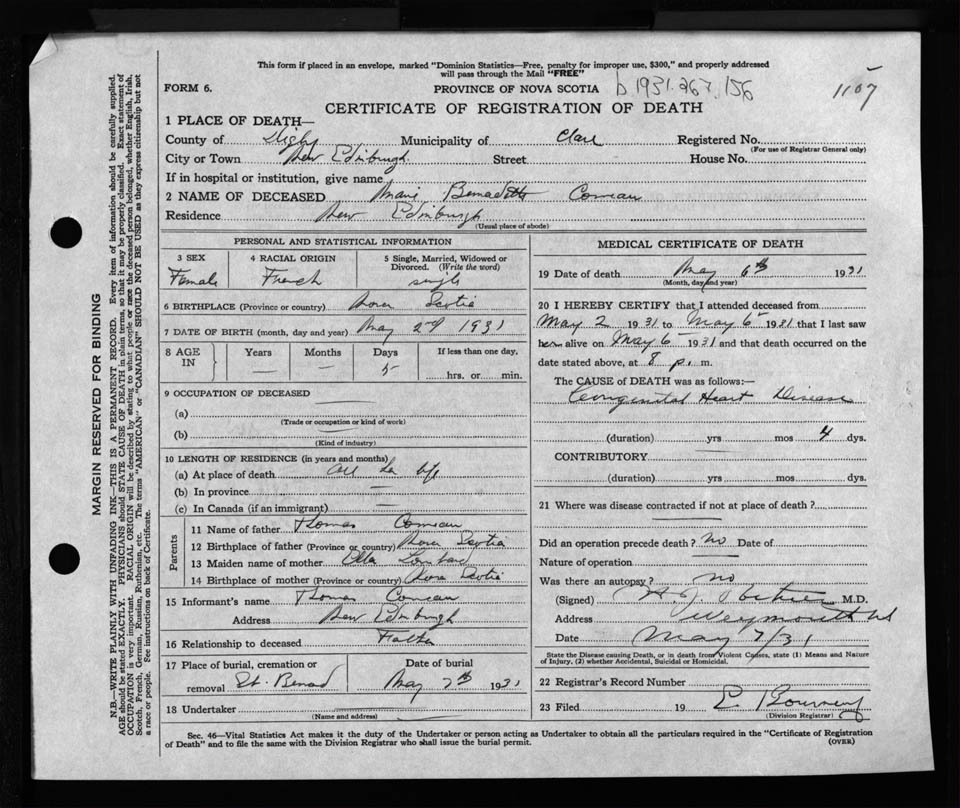 This form if placed in an envelope, marked "Dominion Statistics—Free, penalty for improper use, $300," and properly addressed
will pass through the Mail "FREE"
FORM 6.
PROVINCE OF NOVA SCOTIA b 1931.267.156
1107
CERTIFICATE OF REGISTRATION OF DEATH
1 PLACE OF DEATH—
County of Digby Municipality of Clare Registered No.
(For use of Registrar General only)
City or Town New Edinburgh Street House No.
If in hospital or institution, give name
2 NAME OF DECEASED Marie Benadette Comeau
Residence New Edinburgh
(Usual place of abode)
PERSONAL AND STATISTICAL INFORMATION
3 SEX
Female
4 RACIAL ORIGIN
French
5 Single, Married, Widowed or
Divorced. (Write the word)
single
6 BIRTHPLACE (Province or country) Nova Scotia
7 DATE OF BIRTH (month, day and year) May 2nd 1931
8 AGE IN
Years —
Months —
Days 5
If less than one day,
hrs. or min.
9 OCCUPATION OF DECEASED
(a)
(Trade or occupation or kind of work)
(b)
(Kind of industry)
10 LENGTH OF RESIDENCE (in years and months)
(a) At place of death all her life
(b) In province —
(c) In Canada (if an immigrant) —
Parents
11 Name of father Thomas Comeau
12 Birthplace of father (Province or country) Nova Scotia
13 Maiden name of mother
14 Birthplace of mother (Province or country) Nova Scotia
15 Informant's name Thomas Comeau
Address New Edinburgh
16 Relationship to deceased Father
17 Place of burial, cremation or
removal St. Bernard
Date of burial
May 7th 1931
18 Undertaker
(Name and address)
MEDICAL CERTIFICATE OF DEATH
19 Date of death May 6th 1931
(Month, day and year)
20 I HEREBY CERTIFY that I attended deceased from
May 2 1931 to May 6 1931 that I last saw
her alive on May 6 1931 and that death occurred on the
date stated above, at 8 p. m.
The CAUSE of DEATH was as follows:—
Congenital Heart Disease
(duration) yrs mos 4 dys.
CONTRIBUTORY
(duration) yrs. mos dys.
21 Where was disease contracted if not at place of death?
Did an operation precede death? no Date of
Nature of operation
Was there an autopsy? no
(Signed) M.D.
Address Weymouth NS
Date May 7/31
State the Disease causing Death, or in death from Violent Causes, state (1) Means and Nature
of Injury, (2) whether Accidental, Suicidal or Homicidal.
22 Registrar's Record Number
23 Filed 19
(Division Registrar)
Sec. 46—Vital Statistics Act makes it the duty of the Undertaker or person acting as Undertaker to obtain all the particulars required in the "Certificate of Registration
of Death" and to file the same with the Division Registrar who shall issue the burial permit. (OVER)
MARGIN RESERVED FOR BINDING
N.B.—WRITE PLAINLY WITH UNFADING INK—THIS IS A PERMANENT RECORD. Every item of information should be carefully supplied.
AGE should be stated EXACTLY. PHYSICIANS should STATE CAUSE OF DEATH in plain terms, so that it may be properly classified. Exact statement of
OCCUPATION is very important. RACIAL ORIGIN will be described by stating to what people or race the deceased person belonged, whether English, Irish,
Scotch, French, German, Russian, Ruthenian, etc. The terms "AMERICAN" or "CANADIAN" SHOULD NOT BE USED as they express citizenship but not
a race or people. See instructions on back of Certificate.